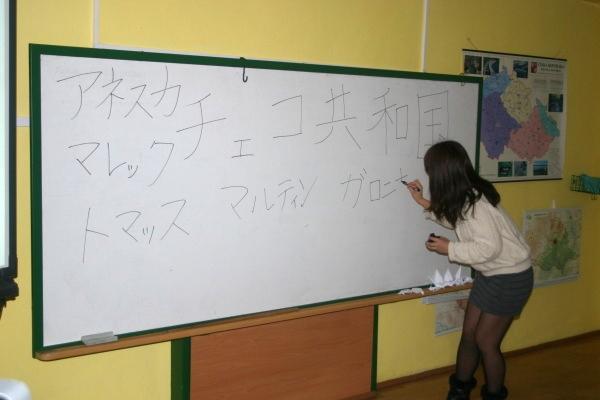 アネスカ
マレック
トマッス
チェコ共和国
マルティン